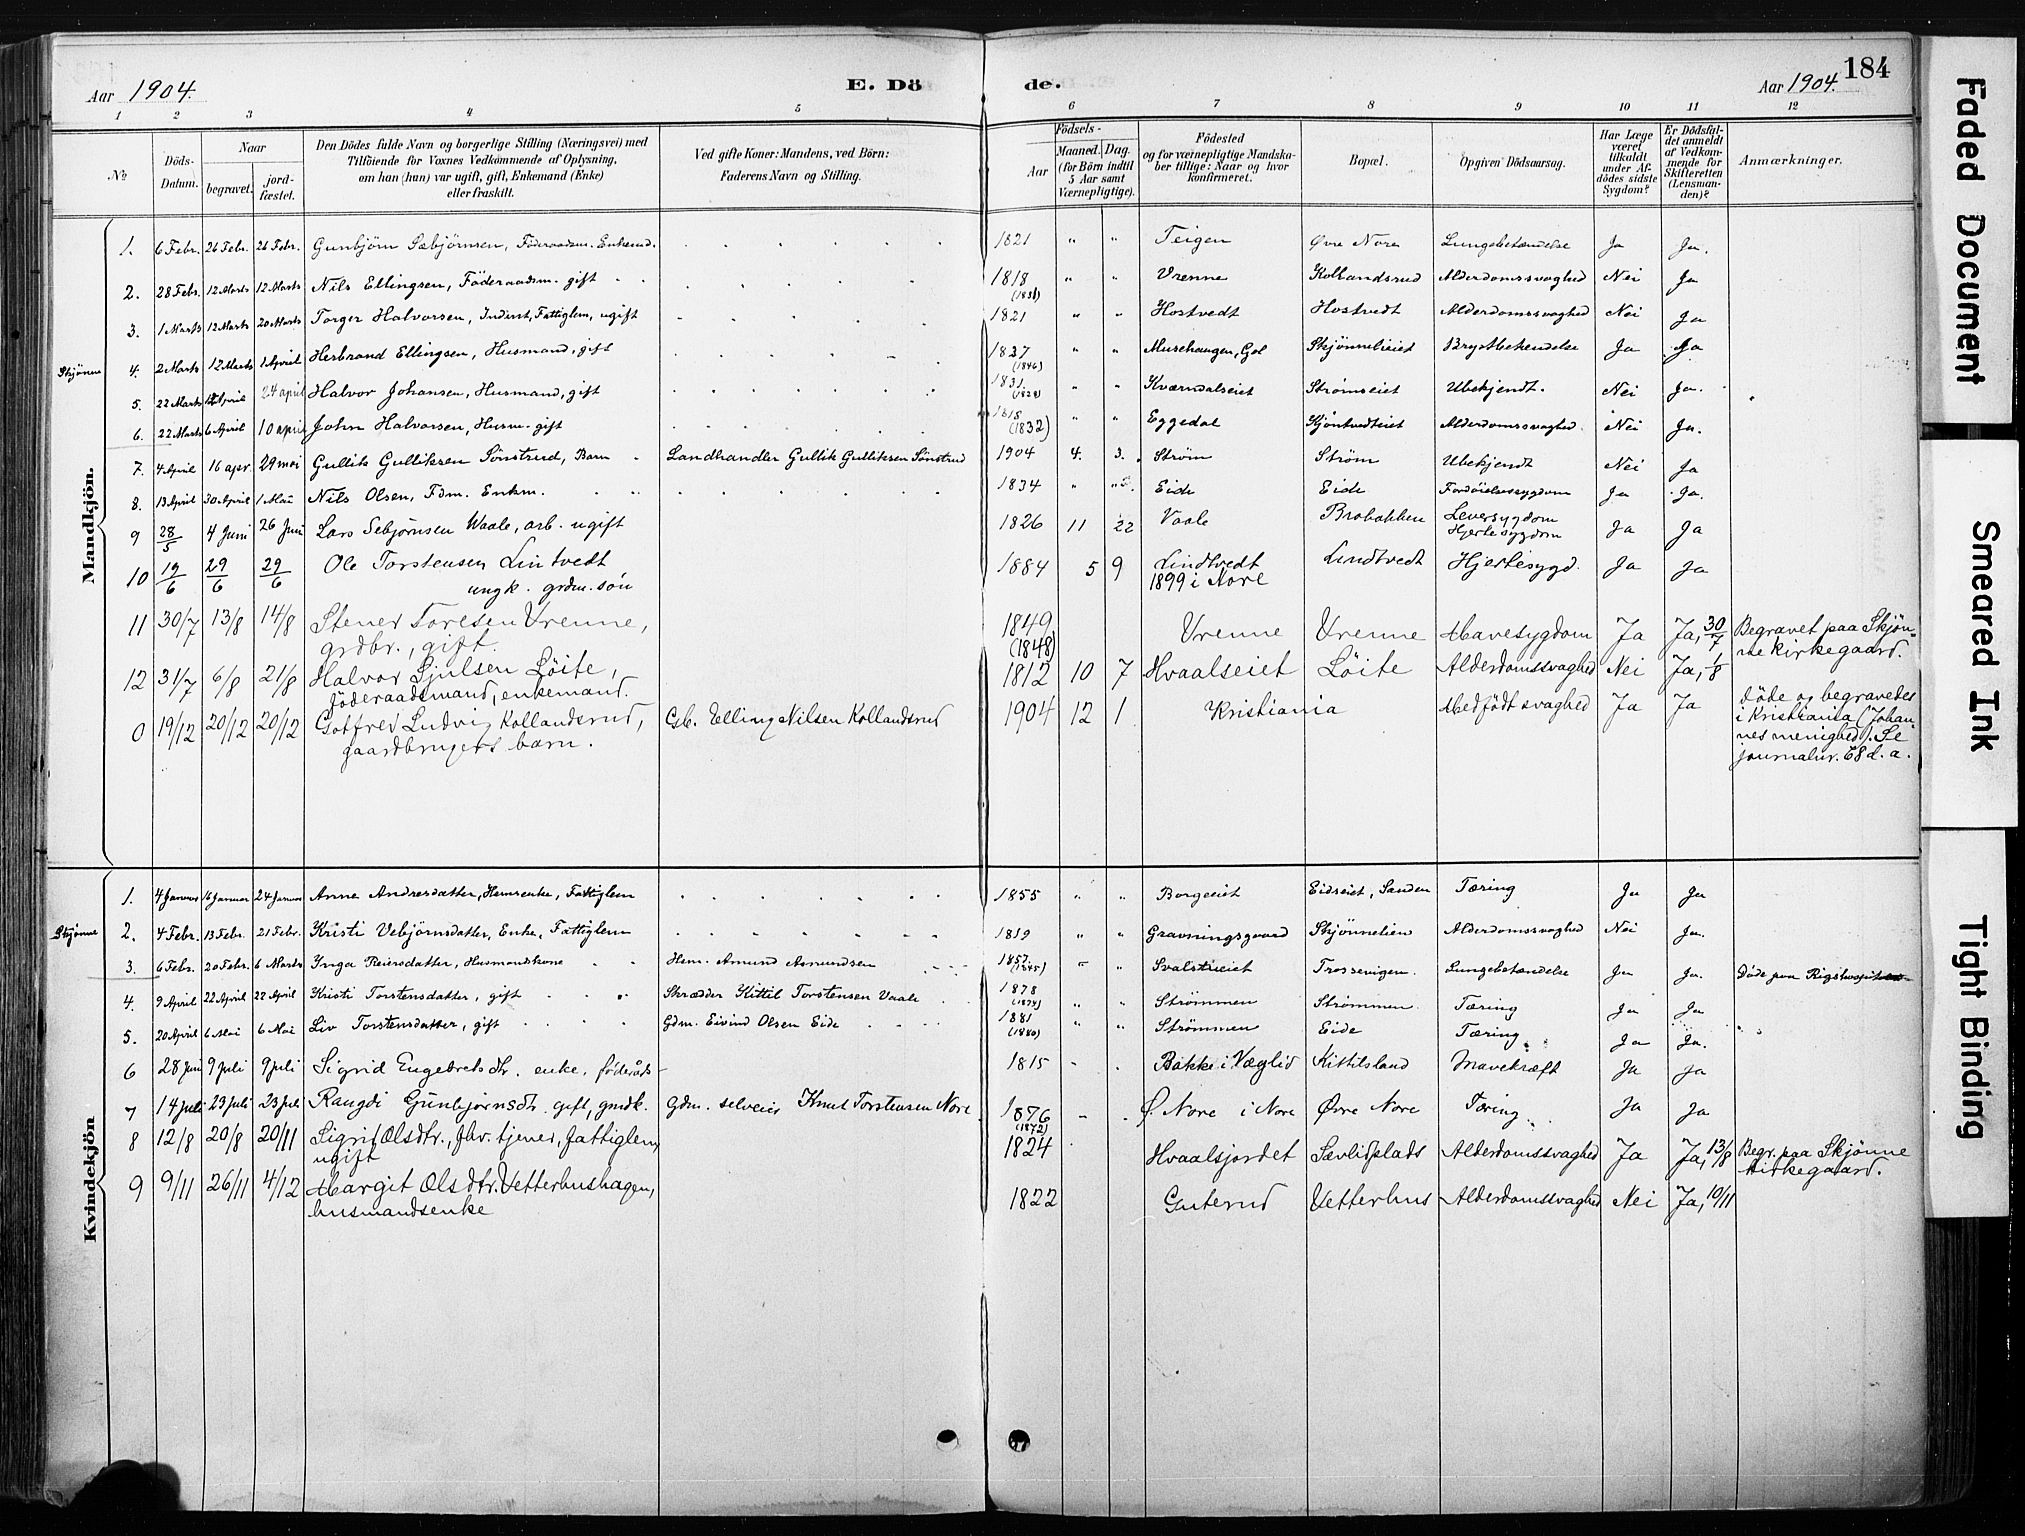 Aar 1904.
E. Döde.
Aar 1904. 184
1 2 3 4 5 6 7 8 9 10 11 12
№
Döds-Datum.
Naar
begravet.
jord-fæstet.
Den Dödes fulde Navn og borgerlige Stilling (Næringsvei) med
Tilföiende for Voxnes Vedkommende af Oplysning,
om han (hun) var ugift, gift, Enkemand (Enke)
eller fraskilt.
Ved gifte Koner: Mandens, ved Börn:
Faderens Navn og Stilling.
Födsels-
Aar
Maaned. Dag.
(for Börn indtil
5 Aar samt
Værnepligtige).
Födested
og for værnepligtige Mandska-
ber tillige: Naar og hvor
konfirmeret.
Bopæl.
Opgiven Dödsaarsag.
Har Læge
været
tilkaldt
under Af-
dödes sidste
Sygdom?
Er Dödsfal-
det anmeldt
af Vedkom-
mende for
Skifteretten
(Lensman-
den)?
Anmærkninger.
Mandkjön.
1. 6 Febr. 26 Febr. 26 Febr. Gunbjörn Sæbjörnsen, Föderaadsm. Enkemd. 1821 " " Teigen Øvre Nore Lungebetændelse Ja Ja.
2. 28 Febr. 12 Marts 12 Marts Nils Ellingsen, Föderaadsm. gift 1818 " " Vrenne Kollandsrud Alderdomssvaghed Nei Ja
3. 1 Marts 12 Marts 20 Marts Torger Halvorsen, Inderst, Fattiglem, ugift 1821 " " Hostvedt Hostvedt Alderdomssvaghed Nei Ja
Skjönne 4. 2 Marts 12 Marts 1 April Herbrand Ellingsen, Husmand, gift 1837 (1846) " " Musehaugen, Gol Skjönnelieiet Brystbetendelse Ja Ja
5. 22 Marts April 24 april Halvor Johansen, Husmand, gift 1831 (1828) " " Kværndalseiet Strömseiet Ubekjendt. Nei Ja.
6. 22 Marts 6 April 10 april John Halvorsen, Husm. gift 1818 (1832) " " Eggedal Kjöntvedteiet Alderdomssvaghed. Nei Ja.
7. 4 April 16 apr. 29 mai Gullik Gulliksen Sønstrud, Barn Landhandler Gullik Gulliksen Sønstrud 1904 4. 3. Strøm Strøm Ubekjendt Nei Ja
8. 13 April 30 April 1 Mai Nils Olsen, Fdm. Enkm. 1834 " " Eide Eide Fordöielsessygdom Ja Ja.
9 28/5 4 Juni 26 Juni Lars Sebjørnsen Waale, arb. ugift 1826 11 22 Vaale Brobakken Leversygdom
Hjertesygdom Ja Ja
10 19/6 29/6 29/6 Ole Torstensen Lintvedt
ungk. grdm. søn 1884 5 9 Lindtvedt
1899 i Nore Lindtvedt Hjertesygd. Ja Ja
11 30/7 13/8 14/8 Stener Toresen Vrenne,
grdbr., gift. 1849 (1848) Vrenne Vrenne Mavesygdom Ja Ja, 30/7 Begravet paa Skjön-
ne kirkegaard.
12 31/7 6/8 21/8 Halvor Gjulsen Löite,
föderaadsmand, enkemand. 1812 10 7 Hvaalseiet Löite Alderdomssvaghed Nei Ja, 1/8
0 19/12 20/12 20/12 Gotfred Ludvig Kollandsrud,
gaardbrugers barn. Gsb. Elling Nilsen Kollandsrud 1904 12 1 Kristiania Medfödt svaghed Ja Ja döde og begravedes
i Kristiania (Johan-
nes menighed). Se
journalnr. 68 d. a.
Kvindekjön
1. 4 Januar 16 Januar 24 Januar Anne Andresdatter, Husmenke, Fattiglem 1855 " " Borgeeiet Eidseiet, Sanden Tæring Ja Ja
Skjönne 2. 4 Febr. 13 Febr. 21 Febr. Kristi Vebjörnsdatter, Enke, Fattiglem 1819 " " Gravningsgaard Skjönnelien Alderdomssvaghed Nei Ja.
3. 6 Febr. 20 Febr. 6 Marts Ynga Reiersdatter, Husmandskone Hsm. Amund Asmundsen 1857 (1845) " " Svalstueiet Trossevigen. Lungebetændelse Ja Ja. Döde paa Rigshospit
4. 9 April 22 April 22 April Kristi Torstensdatter, gift Skrædder Kittil Torstensen Vaale 1878 (1874) " " Strömmen Strömmen Tæring Ja Ja
5. 20 April 6 Mai 6 Mai Liv Torstensdatter, gift Gdm. Eivind Olsen Eide 1881 (1880) " " Strömmen Eide Tæring. Ja Ja.
6 28 Juni 9 Juli 9 Juli Sigrid Engebretsdtr. enke, föderåds- 1815 Bakke i Væglid Kittilsland Mavekræft Ja Ja
7 14 Juli 23 Juli 23 Juli Rangdi Gunbjørnsdtr. gift, gmdk. Gdm. selveier Knut Torstensen Nore 1876 (1872) Ø. Nore i Nore Øvre Nore Tæring. Ja Ja
8 12/8 20/8 20/11 Sigrid Olsdtr., fhv. tjener, fattiglem,
ugift 1824 Hvaalsjordet Sævlidplads Alderdomssvaghed Ja Ja, 13/8 Begr. paa Skjönne
kirkegaard.
9 9/11 26/11 4/12 Margit Olsdtr. Vetterhushagen,
husmandsenke 1822 Guterud Vetterhus Alderdomssvaghed Nei Ja, 10/11
Faded Document
Smeared Ink
Tight Binding